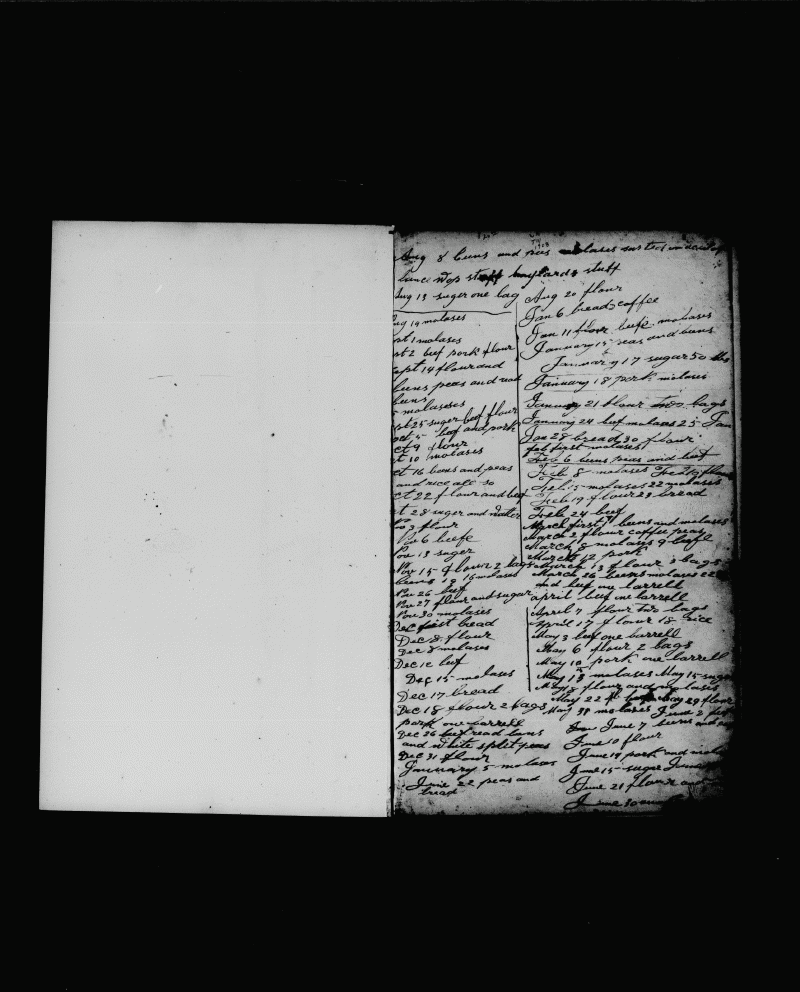 Aug 8 beens and peas molases
lance Wop stuff baylards stuff
Aug 13 suger one bag
ug 19 molases
pt 1 molases
pt 2 beef pork flour
ept 14 flour and
beens peas and
beens
molasеses
pt 25 suger beef flour
oct 5 beef and pork
ct 9 flour
ct 10 molases
ct 16 beens and peas
and rice
ct 22 flour and beef
ct 28 suger and
No 3 flour
Nov 6 beefe
Nov 13 suger
Nov 15 flour 2 bags
beens 19 16 molases
Nov 26 beef
Nov 27 flour and sugar
Nov 30 molases
Dec first bead
Dec 8 flour
Dec 8 molases
Dec 12 beef
Dec 15 molases
Dec 17 bread
Dec 18 flour 2 bags
pork one barrell
Dec 26 beef read bens
and white split peas
Dec 31 flour
January 5 molases
June 22 peas and
bread
Aug 20 flour
Jan 6 bread coffee
Jan 11 flour beefe molases
January 15 peas and beens
January 17 sugar 50 lbs
January 18 pork molases
January 21 flour two bags
January 24 beef molases 25 Jan
Jan 28 bread 30 flour
feb first molases
Feb 6 beens peas and beef
Feb 8 molases Feb flour
Feb 15 molases 22 molases
Feb 19 flour 23 bread
Feb 24 beef
March first beens and molases
March 2 flour coffee peas
March 8 molases 9 beefe
March 12 pork
March 13 flour 2 bags
March 26 beens molases 22
and beef one barrell
april beef one barrell
April 7 flour two bags
April 17 flour 18 rice
May 3 beef one barrell
May 6 flour 2 bags
May 10 pork one barrell
May 13 molases May 15 suga
May flour and molases
May 22 May 29 flour
May molases June 2
June 7 beens and
June 10 flour
June 14 pork and mola
June 15 sugar June
June 21 flour and
June 30